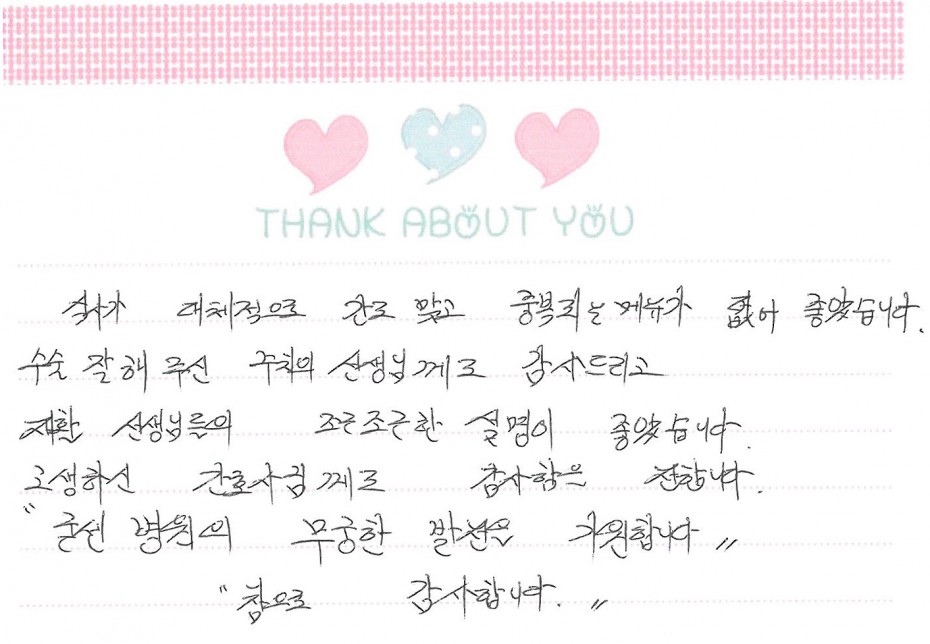 THANK ABOUT YOU
식사가 대체적으로 간도 맞고 중복되는 메뉴가 없어 좋았습니다.
수술 잘해 주신 주치의 선생님께도 감사드리고
재활 선생님들의 조근조근한 설명이 좋았습니다.
고생하신 간호사님께도 감사함을 전합니다.
" 굳센 병원의 무궁한 발전을 기원합니다 "
" 참으로 감사합니다. "